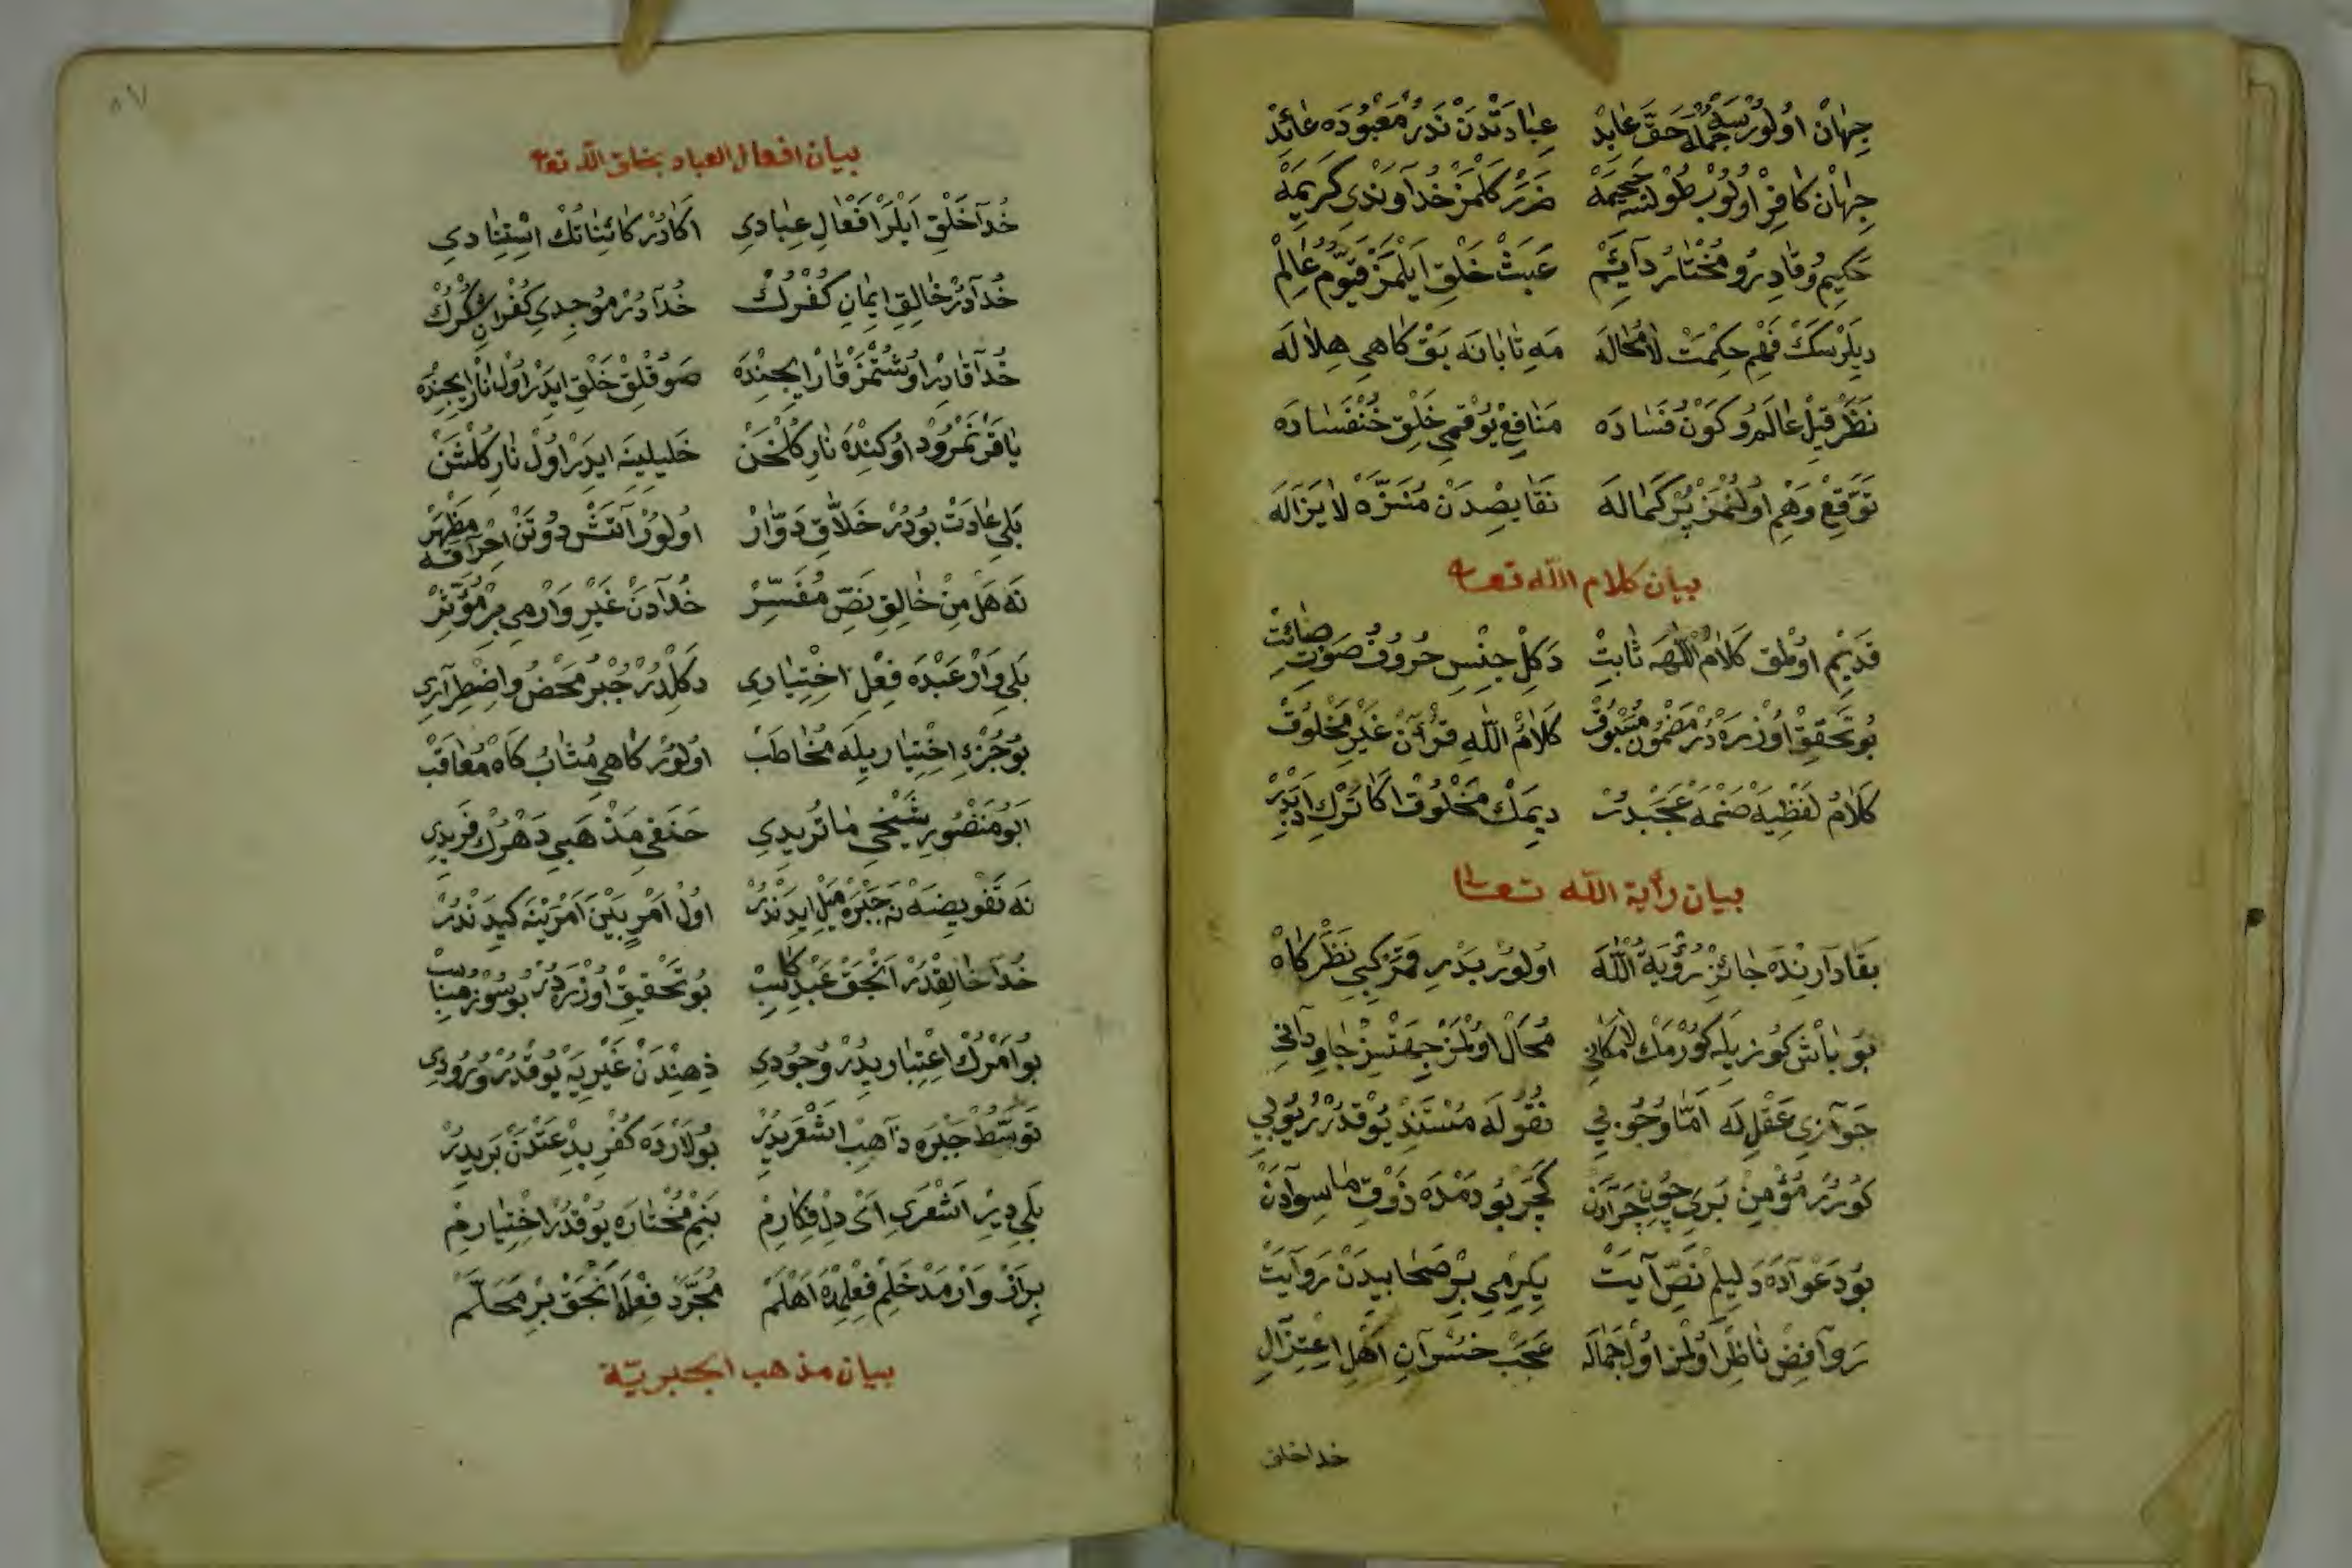 جهان اولورسه جمله حقّ عابد عبادتدن ندر معبوده عائد
جهان كافر اولوب طولسه جحیمه ضرر كلمز خداوند كریمه
حكیم و قادر و مختار دائم عبث خلق ایلمز قیّوم عالم
دیلرسك فهم حكمت لا محاله مه تابانه بق كاهی هلاله
نظر قیل عالم كون فساده منافع یوقمی خلق خنفساده
توقّع وهم اولنمز پر كماله نقایصدن منزّه لا یزاله
بیان كلام الله تعا
قدیم اولمق كلام اللهه ثابت دكل جنس حروف صوت صائت
بو تحقیق اوزره در مضمون مسبوق كلام الله قرآن غیر مخلوق
كلام لفظیه ضمه عجبدر دیمك مخلوق اكا ترك ادبدر
بیان رأیة الله تعالی
بقا دارنده جائز رؤیة الله اولور بدر قمر كبی نظركاه
بو باش كوزیله كورمك لامكانی محال اولمز جهتسز جاودانی
جوازی عقل له امّا وجوبی نقوله مستند یوقدر ریوبی
كورر مؤمن بری چون چرادن كچر بو دمده ذوق ما سوادن
بو دعواده دلیلم نصّ آیت یكرمی بر صحابیدن روایت
روافض ناظر اولمز اول جماله عجب خسرآن اهل اعتزال
خدا خلق
٨٧
بیان افعال العباد بخلق الله تعا
خدا خلق ایلر افعال عبادی اكادر كائناتك استنادی
خدادر خالق ایمان كفرك خدادر موجدی كفران شكرك
خدا قادر اوشتمز قار ایچنده صوقلق خلق ایدر اول نار ایچنده
یاقر نمرود اوكنده نار كلخن خلیلینه ایدر اول نار كلشن
بلی عادت بودر خلاّق دوّار اولور آتش دوتن احراقه مظهر
نه هل من خالق نصّ مفسّر خدادن غیر وارمی بر مؤثّر
بلی وار عبده فعل اختیاری دكلدر جبر محض واضطراری
بو جزء اختیاریله مخاطب اولور كاهی مثاب كاه معاقب
ابو منصور شیخی ماتریدی حنفی مذهبی دهرك فریدی
نه تفویضه نه جبره میل ایدندر اول امر بین امرینه كیدندر
خدا خالقدر انجق عبد كاسب بو تحقیق اوزره در بو سوز مناسب
بو امرك اعتباریدر وجودی ذهندن غیریه یوقدر ورودی
توسّط جبره ذاهب اشعریدر بولارده كفر بدعتدن بریدر
بلی دیر اشعری ای دل فكارم بنم مختاره یوقدر اختیارم
براز وار مدخلم فعلمده اهلم مجرّد فعله انجق بر محلّم
بیان مذهب الجبریّة